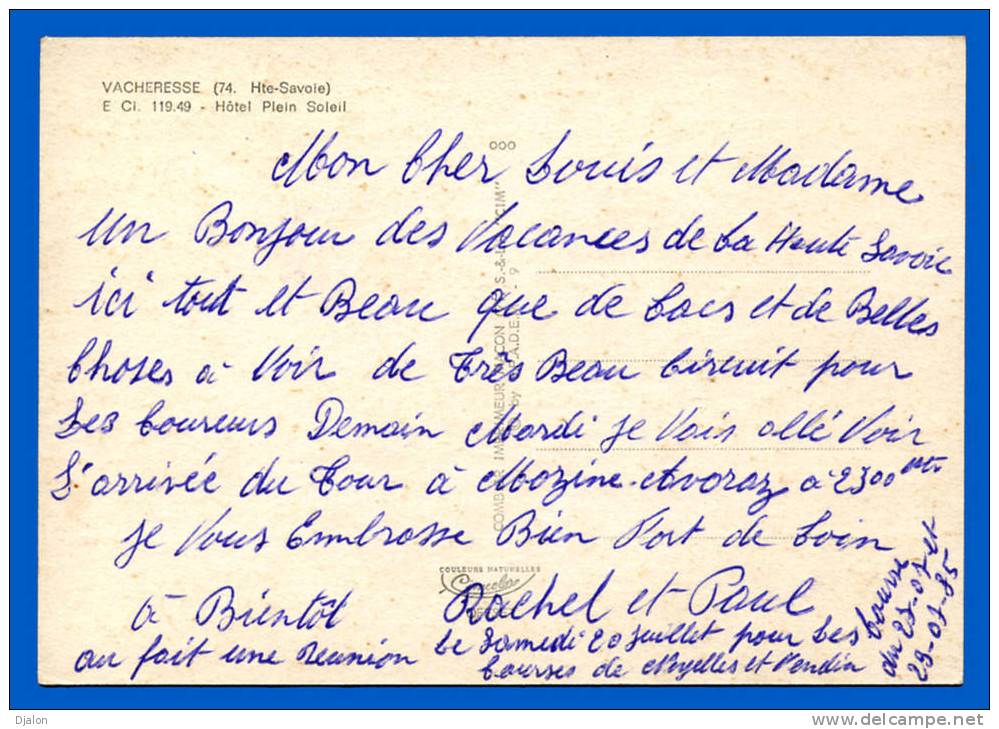 VACHERESSE (74. Hte-Savoie)
E Ci. 119.49 - Hôtel Plein Soleil
Mon Cher Louis et Madame
un Bonjour des Vacances de La Haute Savoie
ici tout et Beau que de Lacs et de Belles
Choses à Voir de très Beau Circuit pour
Les Coureurs Demain Mardi je Vais allé Voir
L'arrivée du Tour à Mozine-Avoraz à 2300 mts
je Vous Embrasse Bien Fort de Loin
à Bientôt Rachel et Paul
au fait une reunion Le Samedi 20 juillet pour Les
Courses de Noyelles et Vendin
Course
du 23-07 et
29-07-85
COMBIER IMPRIMEUR MACON
by
COULEURS NATURELLES
Djalon
www.delcampe.net